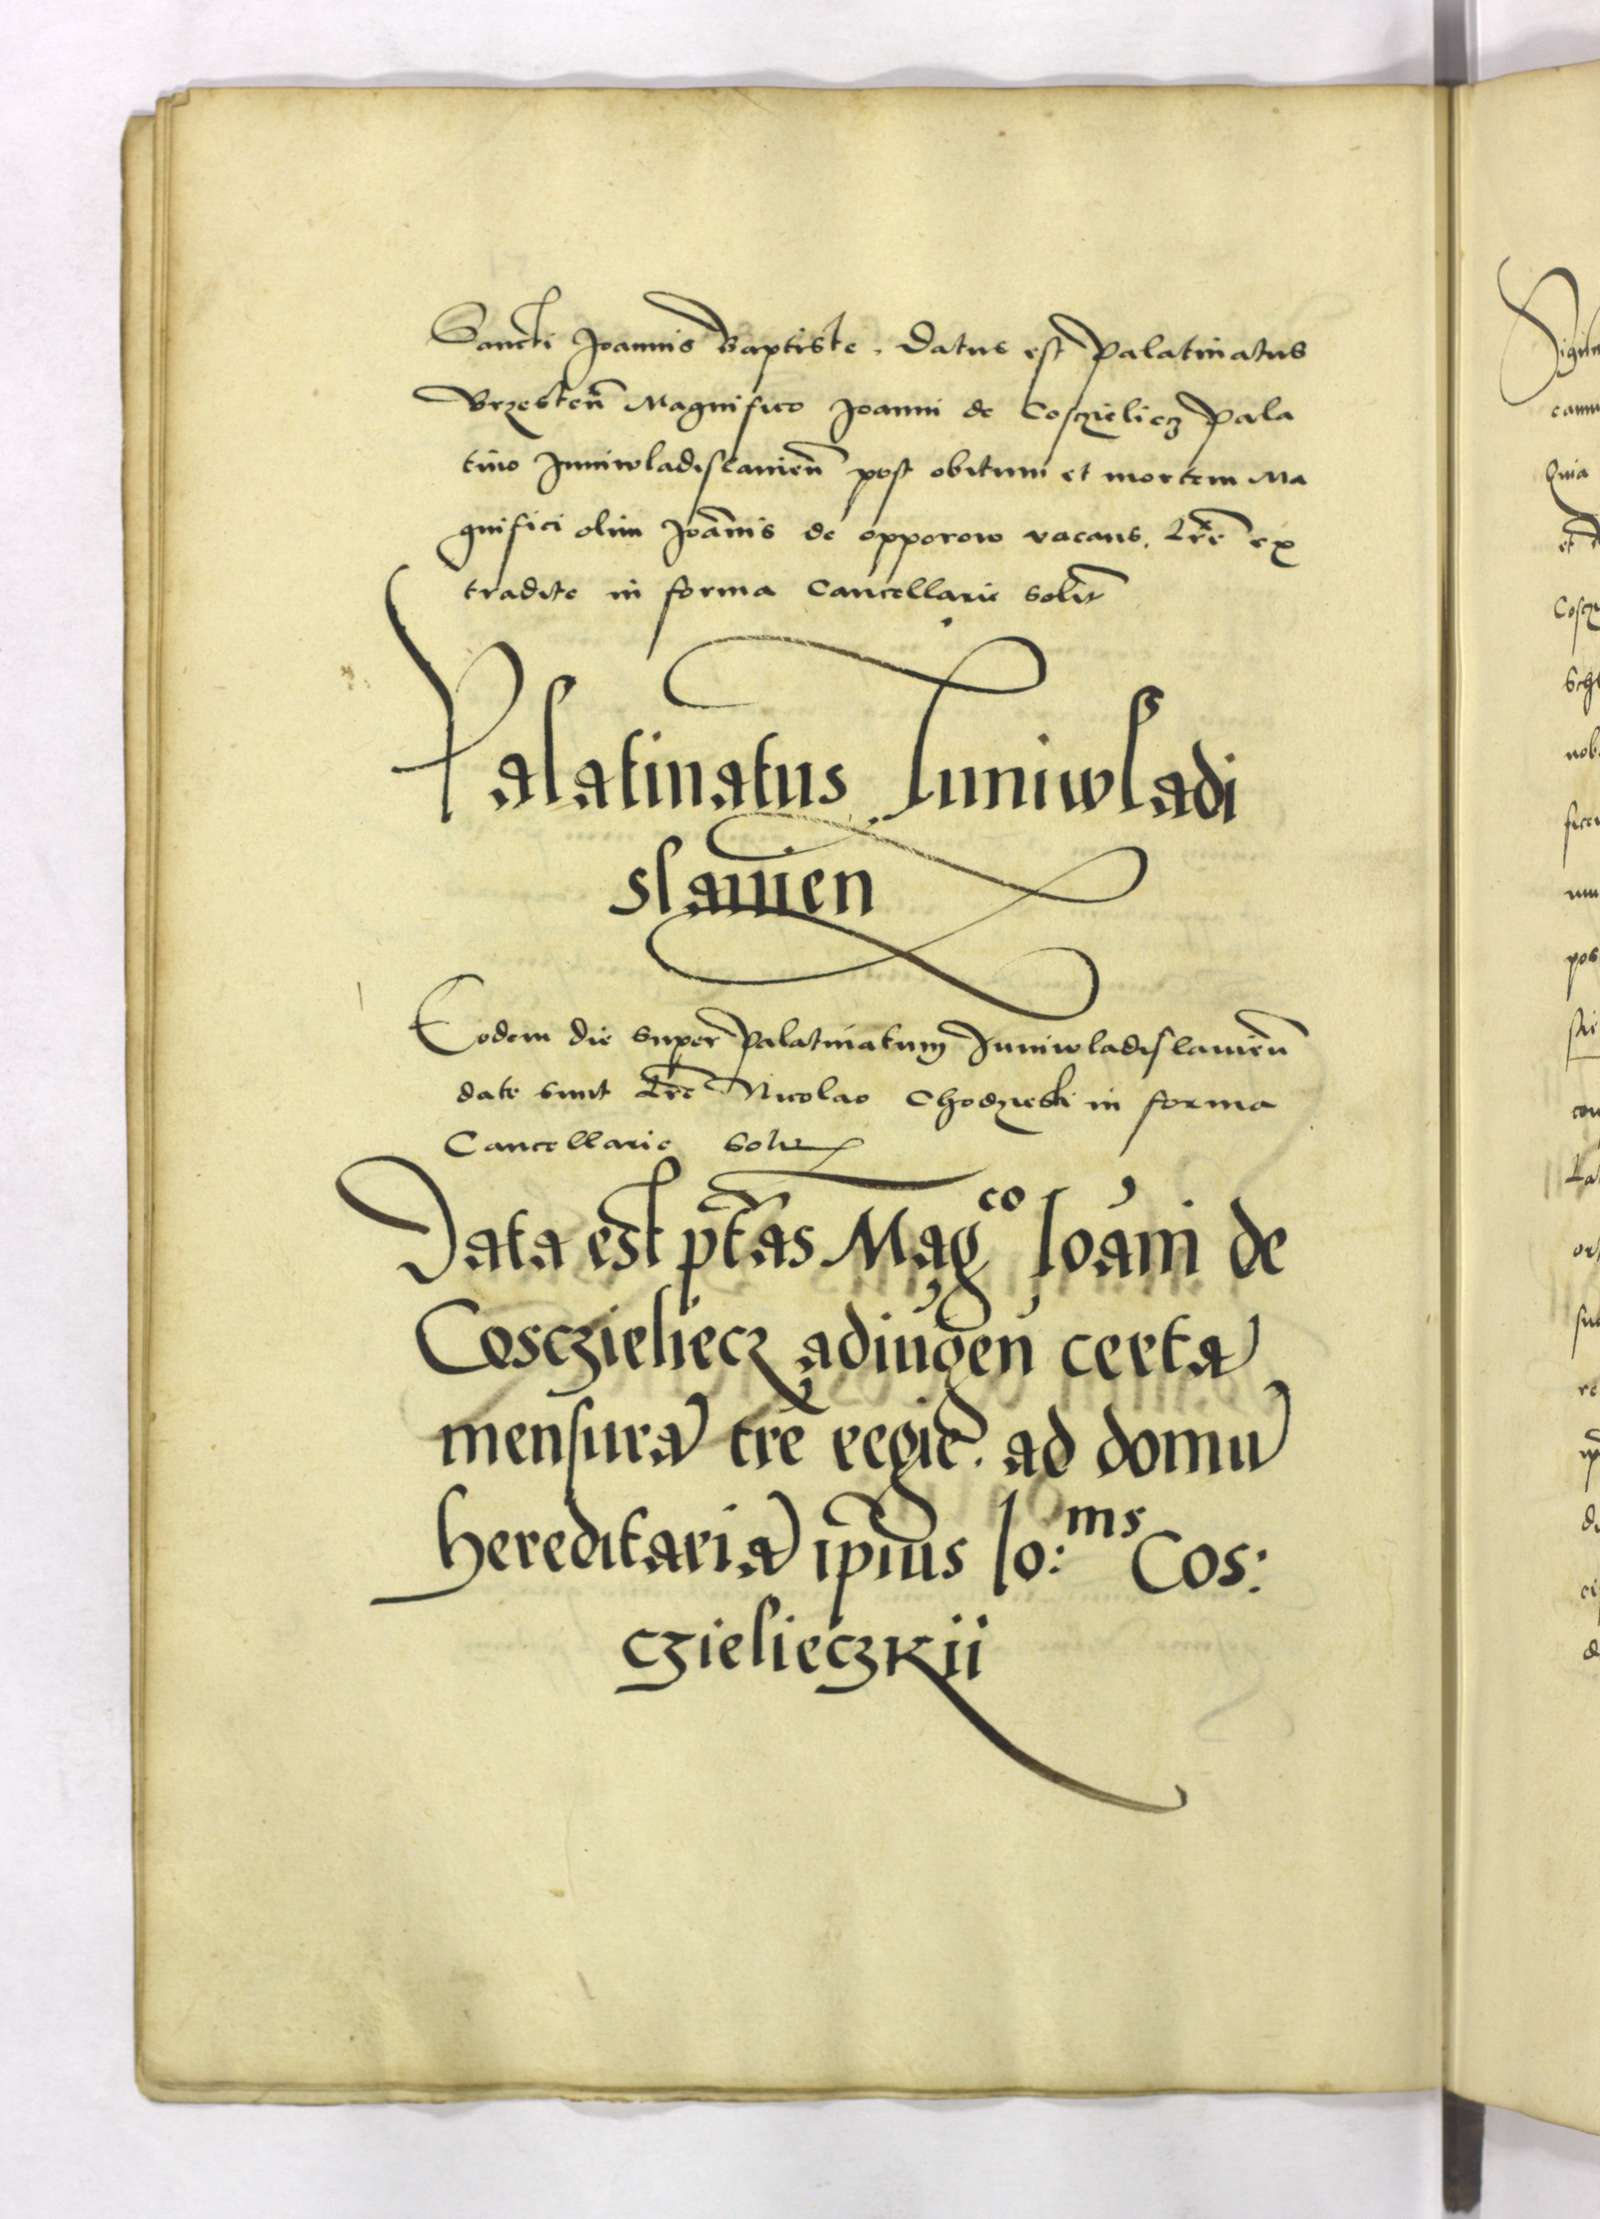 Sancti Joannis Baptiste. Datus est Palatinatus
Brzesteñ Magnifico Joanni de Cosczieliecz Pala
tino Juniwladislavieñ post obitum et mortem Ma
gnifici olim Joãnis de opporow vacans. Lr̃e ex
tradite in forma Cancellarie solit̃
Palatinatus Iuniwladi
slavien̄
Eodem die super Palatinatum Juniwladislavieñ
date sunt Lr̃e Nicolao Chodzieski in forma
Cancellarie solit
Data est pt̃as Mag^co Ioãni de
Cosczieliecz adiũgeñ certã
mensurã tr̃e regie. ad domũ
hereditariã ip̃ius Io:^ms Cos:
czielieczkii